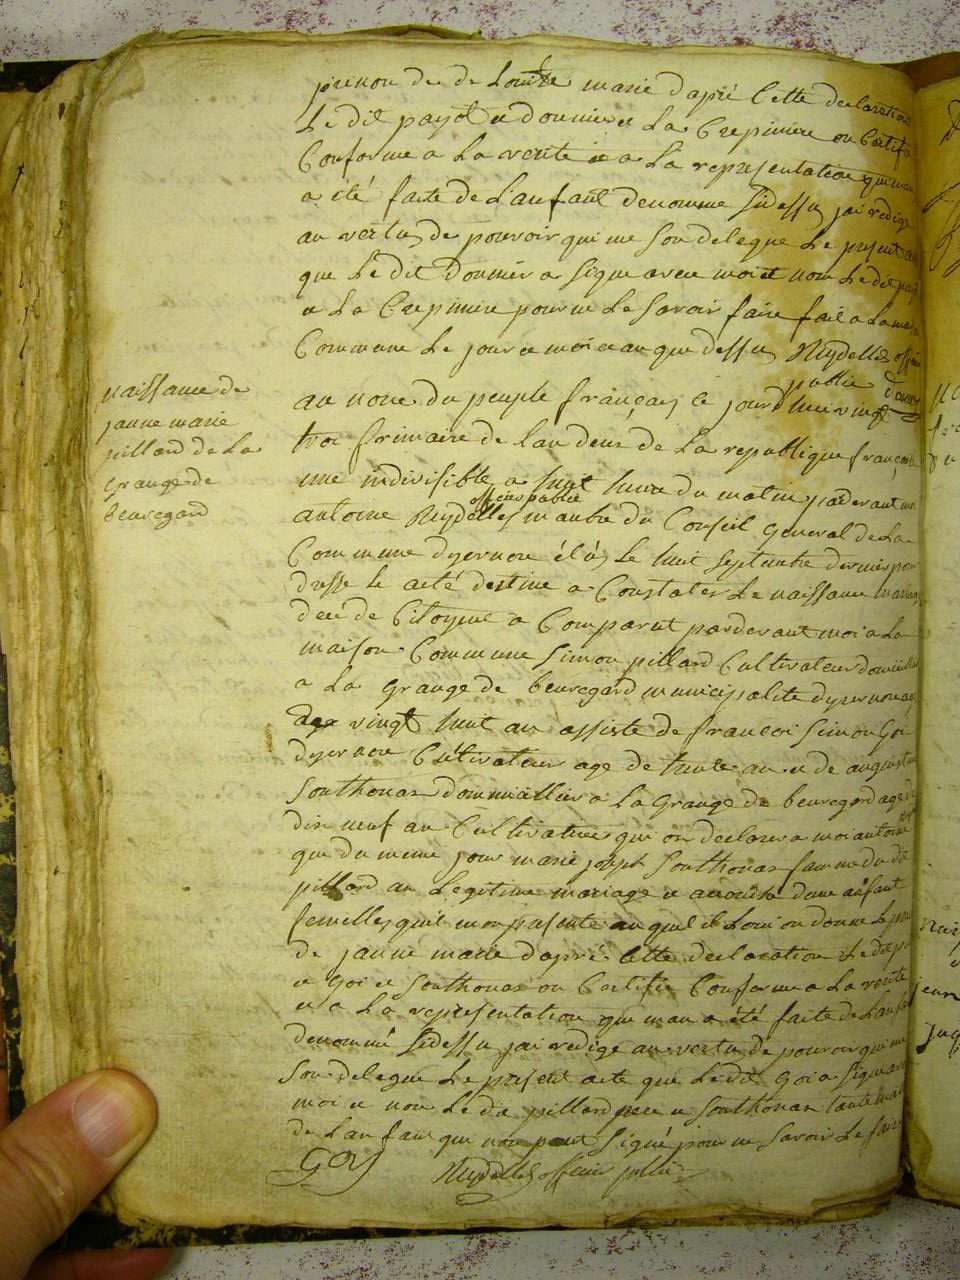 prenon de de Louise marie d'aprè Cette declaration
Le dit payot e donnier e La Crepiniere on Certifie
Conforme a La verite e a La representation qui mon
a été faite de L'anfant denomme sidessu, jai redige
au vertu, de pouvoir qui me son delegue Le present acte
que Le dit donnier a signe avec moi et non Le dit payot
e La Crepiniere pour ne Le savoir faire fait a La maison
Commune Le jour e moi e an que dessu, Neydelle officie
publie
donnier
naissance de
janne marie
pillard de La
grange de
beuregard
au nom du peuple françai, ce jourd'hui vingt
troi frimaire de l'an deux de La republique française
une indivisible a huit heure du matin, pardevant moi
officie publie
antoine Neydelle, manbre du Conseil general de La
Commune dyernore élu, Le huit septanbre dernier pour
dressé le acté destine a Constater Le naissance mariage
decé de Citoyens a Comparut pardevant moi a La
maison Commune simon pillard Cultivateur domicillié
a La grange de beuregard municipalite dyernore
age vingt huit an assiste de françoi simon goi
dyernore Cultivateur age de trante an e de augustin
southonax domicillier a La grange de beuregard age de
dix neuf an Cultivateur, qui on declarer a moi antoine
que du meme jour marie joseph southonax famme du dit
pillard an Legitime mariage e accouché d'une anfant
femelle, quil mon presente auquel il Loui on donne Le prenon
de janne marie d'aprè Cette declaration Le dit pillard
e goi e southonax on Certifie Conforme a La verite
e a La representation qui m'an a été faite de L'anfant
denommé sidessu, jai redige au vertu, de pouvoir qui me
son delegue Le present acte que Le dit goi a signe avec
moi e non Le dit pillard pere e southonax
de L'anfant qui non peut signé pour ne savoir Le faire
Goy Neydelle officie publie